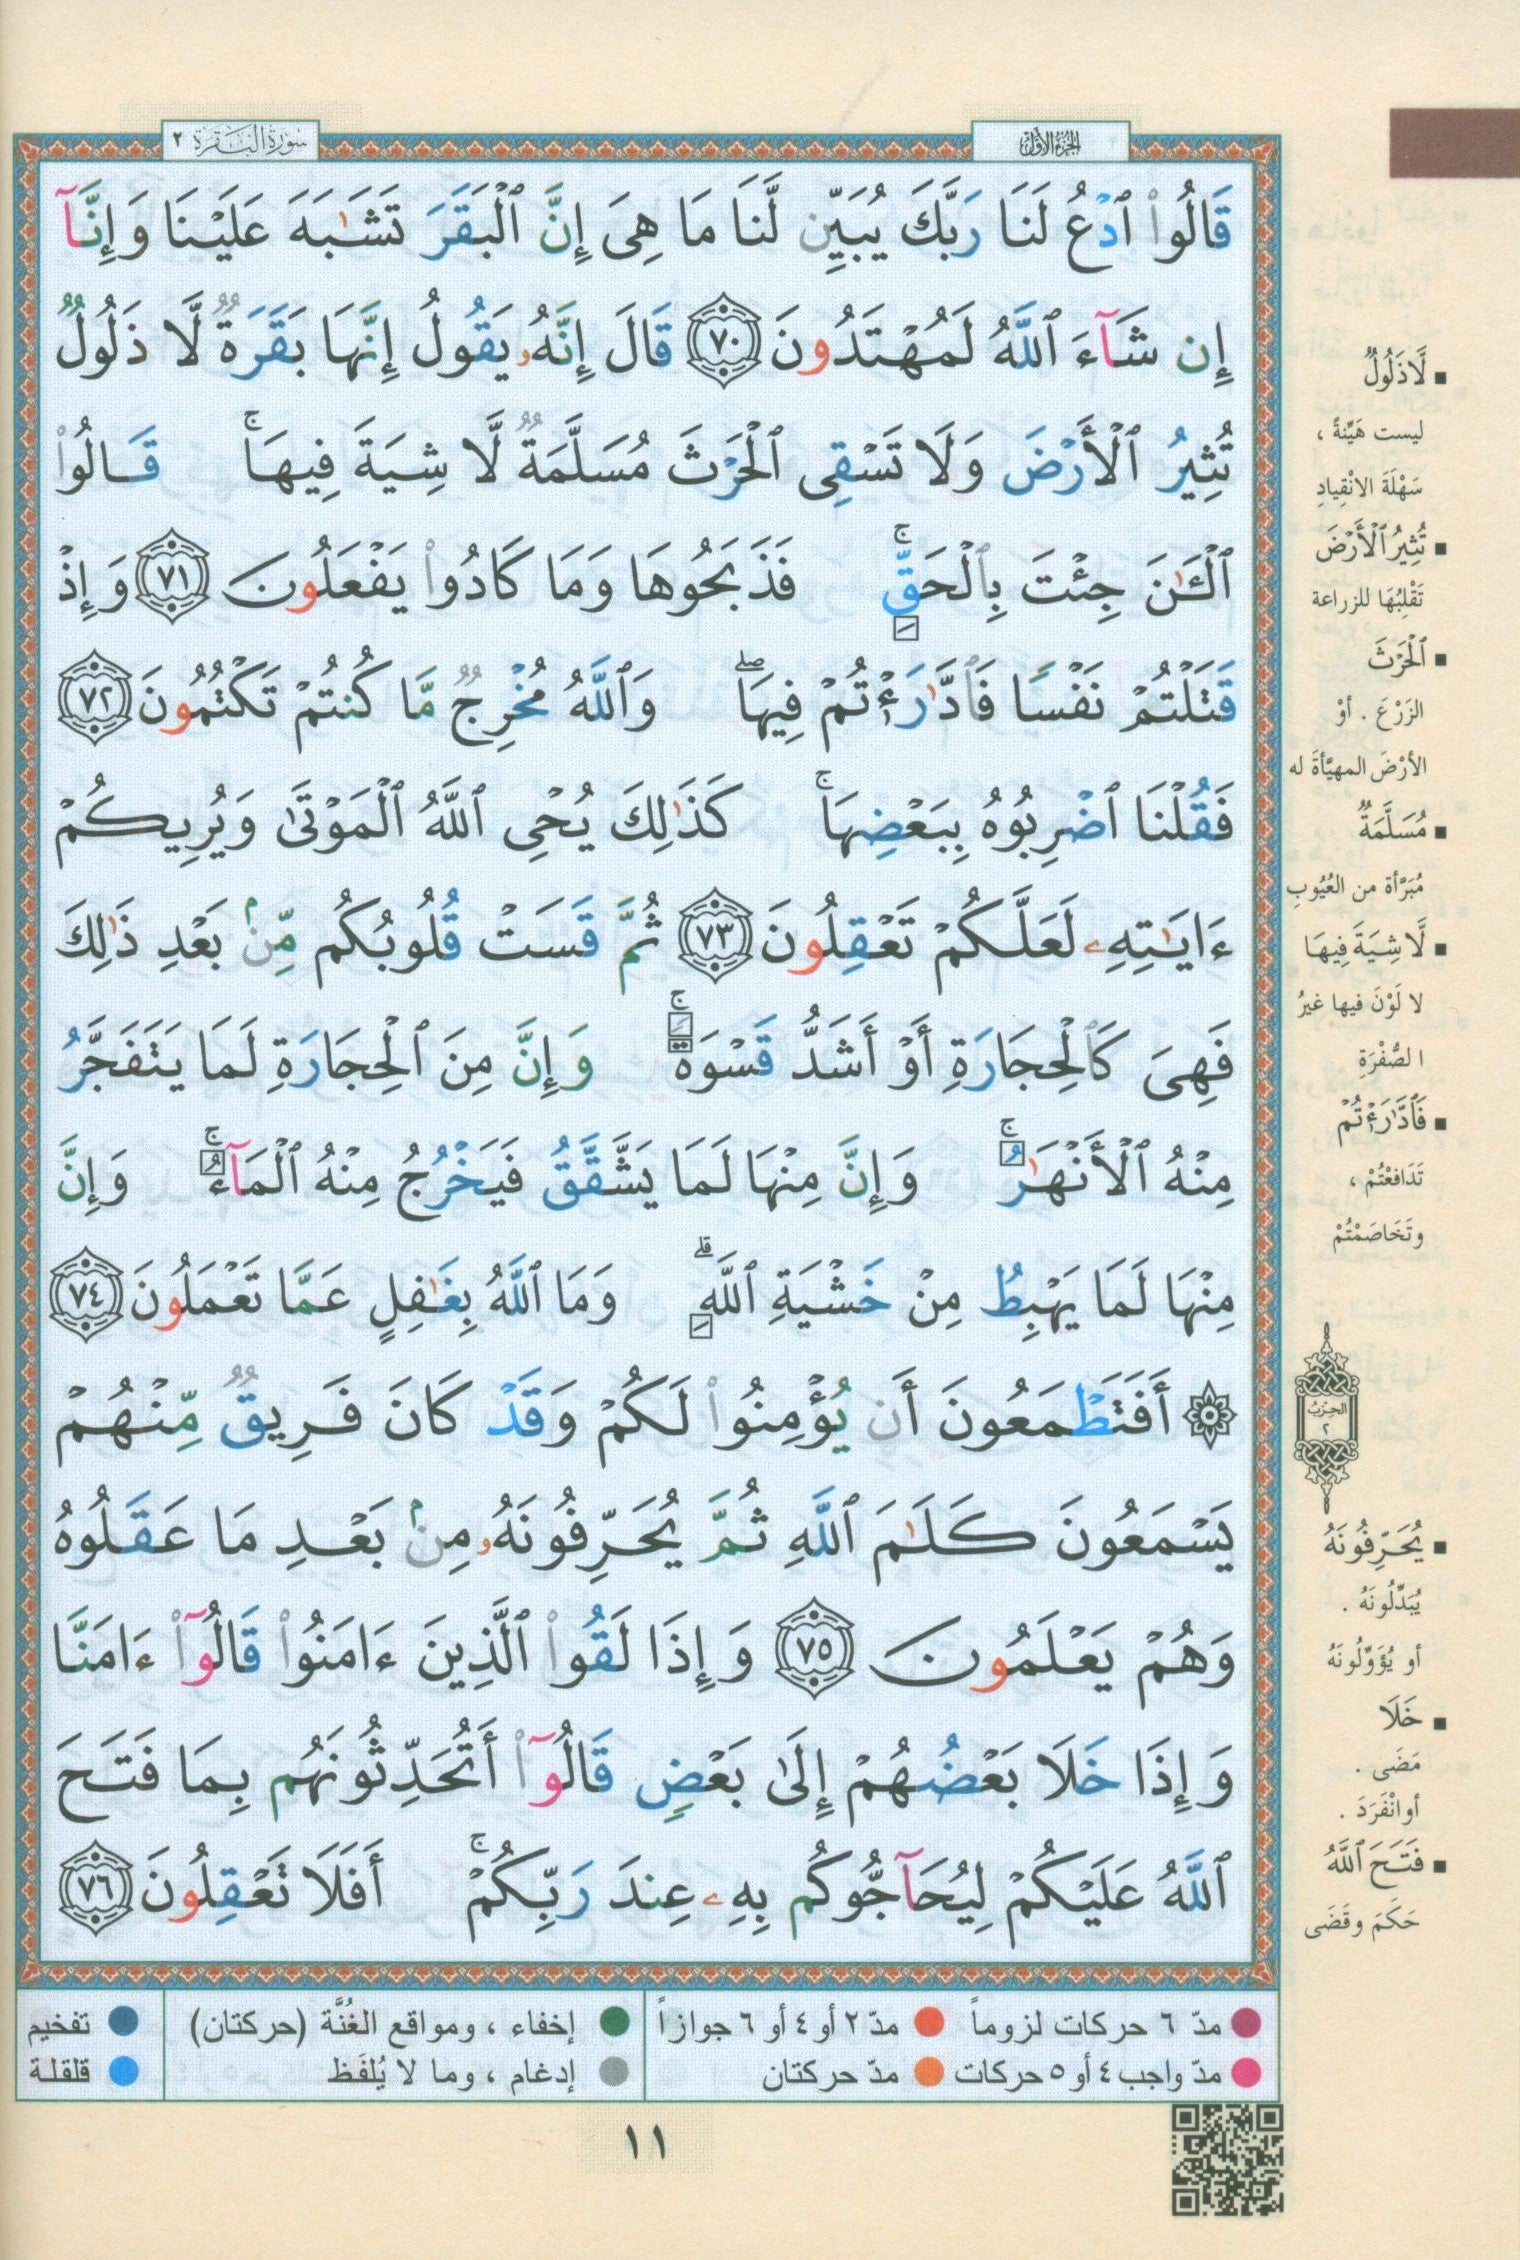 الجزء الأول
سورة البقرة ٢
قَالُوا۟ ٱدْعُ لَنَا رَبَّكَ يُبَيِّن لَّنَا مَا هِىَ إِنَّ ٱلْبَقَرَ تَشَـٰبَهَ عَلَيْنَا وَإِنَّآ
إِن شَآءَ ٱللَّهُ لَمُهْتَدُونَ ٧٠ قَالَ إِنَّهُۥ يَقُولُ إِنَّهَا بَقَرَةٌ لَّا ذَلُولٌ
تُثِيرُ ٱلْأَرْضَ وَلَا تَسْقِى ٱلْحَرْثَ مُسَلَّمَةٌ لَّا شِيَةَ فِيهَا ۚ قَالُوا۟
ٱلْـَٔـٰنَ جِئْتَ بِٱلْحَقِّ ۚ فَذَبَحُوهَا وَمَا كَادُوا۟ يَفْعَلُونَ ٧١ وَإِذْ
قَتَلْتُمْ نَفْسًا فَٱدَّٰرَْٰٔتُمْ فِيهَا ۖ وَٱللَّهُ مُخْرِجٌ مَّا كُنتُمْ تَكْتُمُونَ ٧٢
فَقُلْنَا ٱضْرِبُوهُ بِبَعْضِهَا ۚ كَذَٰلِكَ يُحْىِ ٱللَّهُ ٱلْمَوْتَىٰ وَيُرِيكُمْ
ءَايَـٰتِهِۦ لَعَلَّكُمْ تَعْقِلُونَ ٧٣ ثُمَّ قَسَتْ قُلُوبُكُم مِّنۢ بَعْدِ ذَٰلِكَ
فَهِىَ كَٱلْحِجَارَةِ أَوْ أَشَدُّ قَسْوَةً ۚ وَإِنَّ مِنَ ٱلْحِجَارَةِ لَمَا يَتَفَجَّرُ
مِنْهُ ٱلْأَنْهَـٰرُ ۚ وَإِنَّ مِنْهَا لَمَا يَشَّقَّقُ فَيَخْرُجُ مِنْهُ ٱلْمَآءُ ۚ وَإِنَّ
مِنْهَا لَمَا يَهْبِطُ مِنْ خَشْيَةِ ٱللَّهِ ۗ وَمَا ٱللَّهُ بِغَـٰفِلٍ عَمَّا تَعْمَلُونَ ٧٤
۞ أَفَتَطْمَعُونَ أَن يُؤْمِنُوا۟ لَكُمْ وَقَدْ كَانَ فَرِيقٌ مِّنْهُمْ
يَسْمَعُونَ كَلَـٰمَ ٱللَّهِ ثُمَّ يُحَرِّفُونَهُۥ مِنۢ بَعْدِ مَا عَقَلُوهُ
وَهُمْ يَعْلَمُونَ ٧٥ وَإِذَا لَقُوا۟ ٱلَّذِينَ ءَامَنُوا۟ قَالُوٓا۟ ءَامَنَّا
وَإِذَا خَلَا بَعْضُهُمْ إِلَىٰ بَعْضٍ قَالُوٓا۟ أَتُحَدِّثُونَهُم بِمَا فَتَحَ
ٱللَّهُ عَلَيْكُمْ لِيُحَآجُّوكُم بِهِۦ عِندَ رَبِّكُمْ ۚ أَفَلَا تَعْقِلُونَ ٧٦
▪ لَّا ذَلُولٌ
ليست هَيِّنةً ،
سَهْلَةَ الانْقِيادِ
▪ تُثِيرُ ٱلْأَرْضَ
تَقْلِبُهَا للزراعة
▪ ٱلْحَرْثَ
الزَرْعَ . أوْ
الأرْضَ المهيَّأةَ له
▪ مُسَلَّمَةٌ
مُبَرَّأة من العُيُوبِ
▪ لَّا شِيَةَ فِيهَا
لا لَوْنَ فيها غيرُ
الصُّفْرَةِ
▪ فَٱدَّٰرَْٰٔتُمْ
تَدَافعْتُمْ ،
وتَخَاصَمْتُمْ
الحزب
٢
▪ يُحَرِّفُونَهُ
يُبَدِّلُونَهُ .
أو يُؤَوِّلُونَهُ
▪ خَلَا
مَضَى .
أو انْفَرَدَ .
▪ فَتَحَ ٱللَّهُ
حَكَمَ وقَضَى
مدّ ٦ حركات لزوماً مدّ ٢ أو ٤ أو ٦ جوازاً إخفاء ، ومواقع الغُنَّة (حركتان) تفخيم
مدّ واجب ٤ أو ٥ حركات مدّ حركتان إدغام ، وما لا يُلفَظ قلقلة
١١